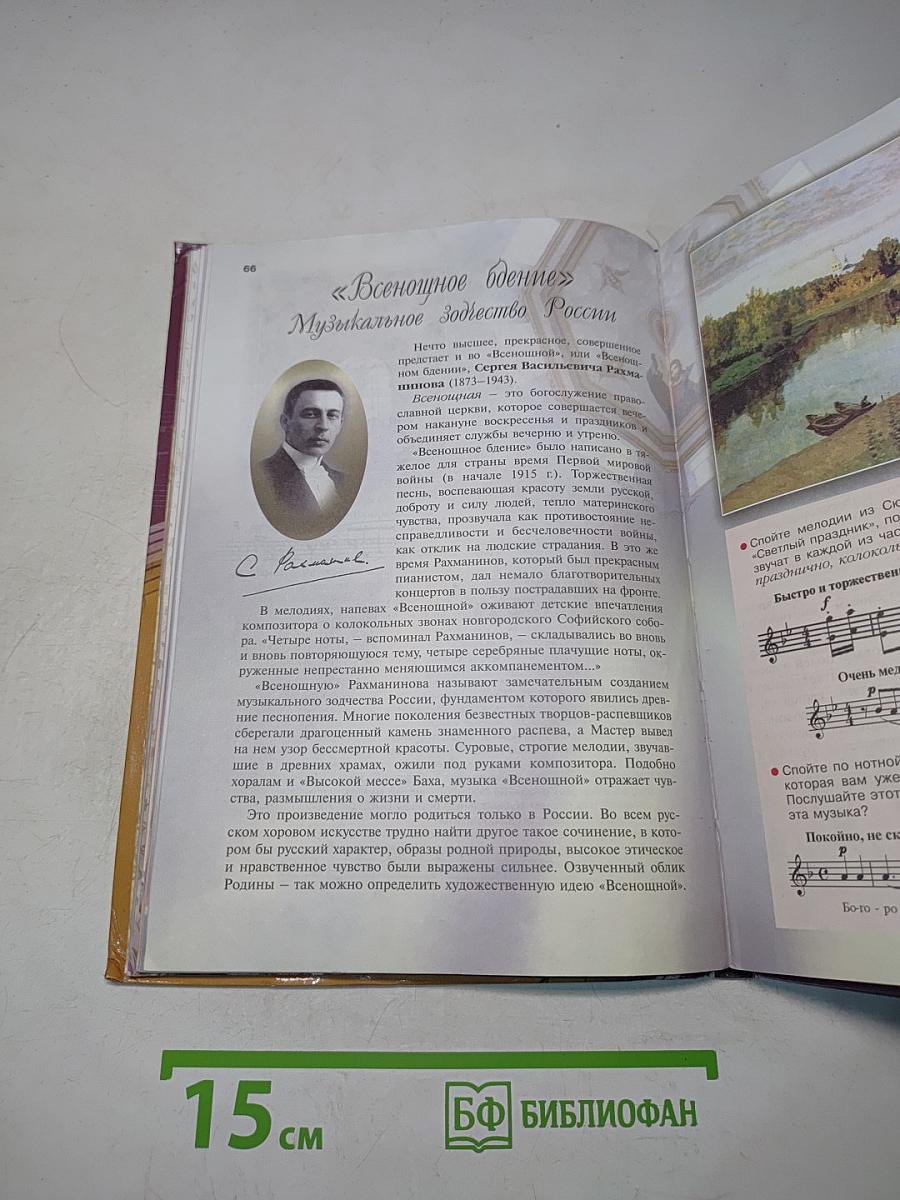 66
«Всенощное бдение»
Музыкальное зодчество России
Нечто высшее, прекрасное, совершенное
предстает и во «Всенощной», или «Всенощ-
ном бдении», Сергея Васильевича Рахма-
нинова (1873–1943).
Всенощная – это богослужение право-
славной церкви, которое совершается вече-
ром накануне воскресенья и праздников и
объединяет службы вечерню и утреню.
«Всенощное бдение» было написано в тя-
желое для страны время Первой мировой
войны (в начале 1915 г.). Торжественная
песнь, воспевающая красоту земли русской,
доброту и силу людей, тепло материнского
чувства, прозвучала как противостояние не-
справедливости и бесчеловечности войны,
как отклик на людские страдания. В это же
время Рахманинов, который был прекрасным
пианистом, дал немало благотворительных
концертов в пользу пострадавших на фронте.
С. Рахманинов.
В мелодиях, напевах «Всенощной» оживают детские впечатления
композитора о колокольных звонах новгородского Софийского собо-
ра. «Четыре ноты, – вспоминал Рахманинов, – складывались во вновь
и вновь повторяющуюся тему, четыре серебряные плачущие ноты, ок-
руженные непрестанно меняющимся аккомпанементом...»
«Всенощную» Рахманинова называют замечательным созданием
музыкального зодчества России, фундаментом которого явились древ-
ние песнопения. Многие поколения безвестных творцов-распевщиков
сберегали драгоценный камень знаменного распева, а Мастер вывел
на нем узор бессмертной красоты. Суровые, строгие мелодии, звучав-
шие в древних храмах, ожили под руками композитора. Подобно
хоралам и «Высокой мессе» Баха, музыка «Всенощной» отражает чув-
ства, размышления о жизни и смерти.
Это произведение могло родиться только в России. Во всем рус-
ском хоровом искусстве трудно найти другое такое сочинение, в кото-
ром бы русский характер, образы родной природы, высокое этическое
и нравственное чувство были выражены сильнее. Озвученный облик
Родины – так можно определить художественную идею «Всенощной».
• Спойте мелодии из Сю
«Светлый праздник», по
звучат в каждой из час
празднично, колоколь
Быстро и торжествен
f
Очень мед
p
• Спойте по нотной
которая вам уже
Послушайте этот
эта музыка?
Покойно, не ск
p
Бо-го - ро
15 см
БФ БИБЛИОФАН